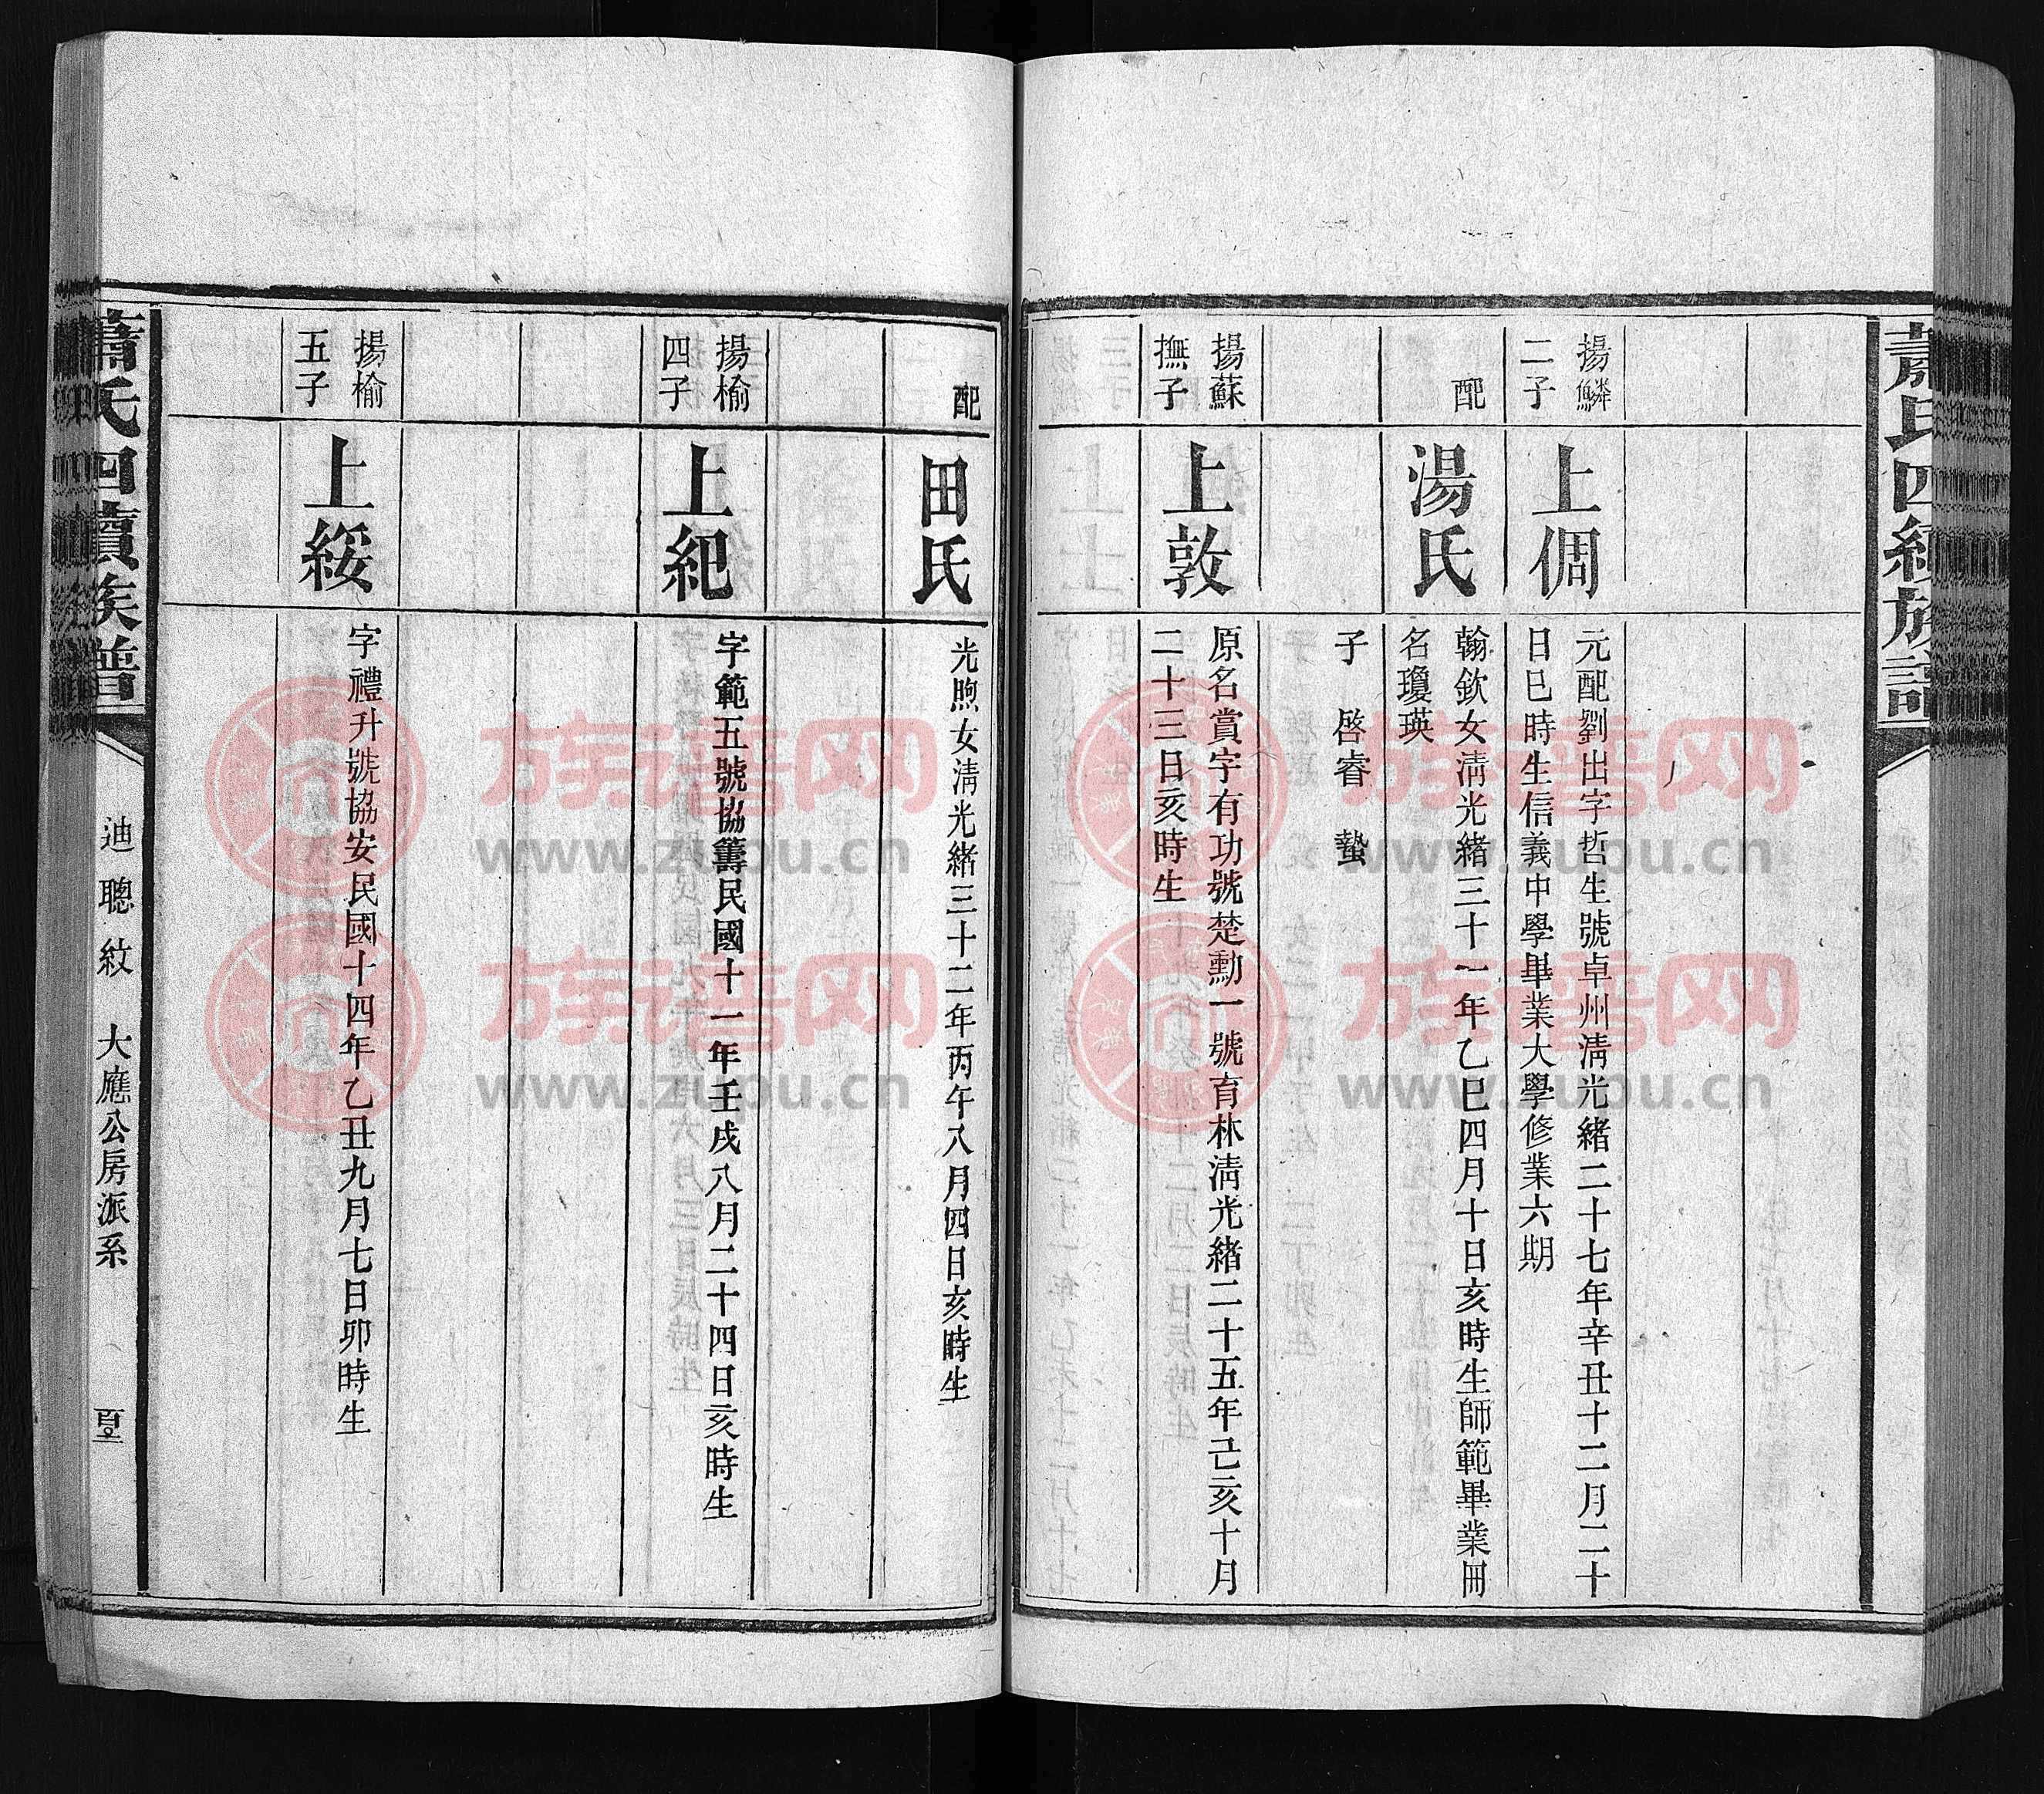 蕭氏四續族譜
揚鱗
二子
上倜
元配劉出字哲生號卓州淸光緖二十七年辛丑十二月二十
日巳時生信義中學畢業大學修業六期
配
湯氏
翰欽女淸光緖三十一年乙巳四月十日亥時生師範畢業冊
名瓊瑛
子 啓睿 蟄
揚蘇
撫子
上敦
原名賞字有功號楚勳一號育林淸光緖二十五年己亥十月
二十三日亥時生
配
田氏
光煦女淸光緖三十二年丙午八月四日亥時生
揚榆
四子
上紀
字範五號協籌民國十一年壬戌八月二十四日亥時生
揚榆
五子
上綏
字禮升號協安民國十四年乙丑九月七日卯時生
蕭氏四續族譜
迪聰紋 大應公房派系
族谱网
www.zupu.cn
族谱网
www.zupu.cn
族谱网
www.zupu.cn
族谱网
www.zupu.cn